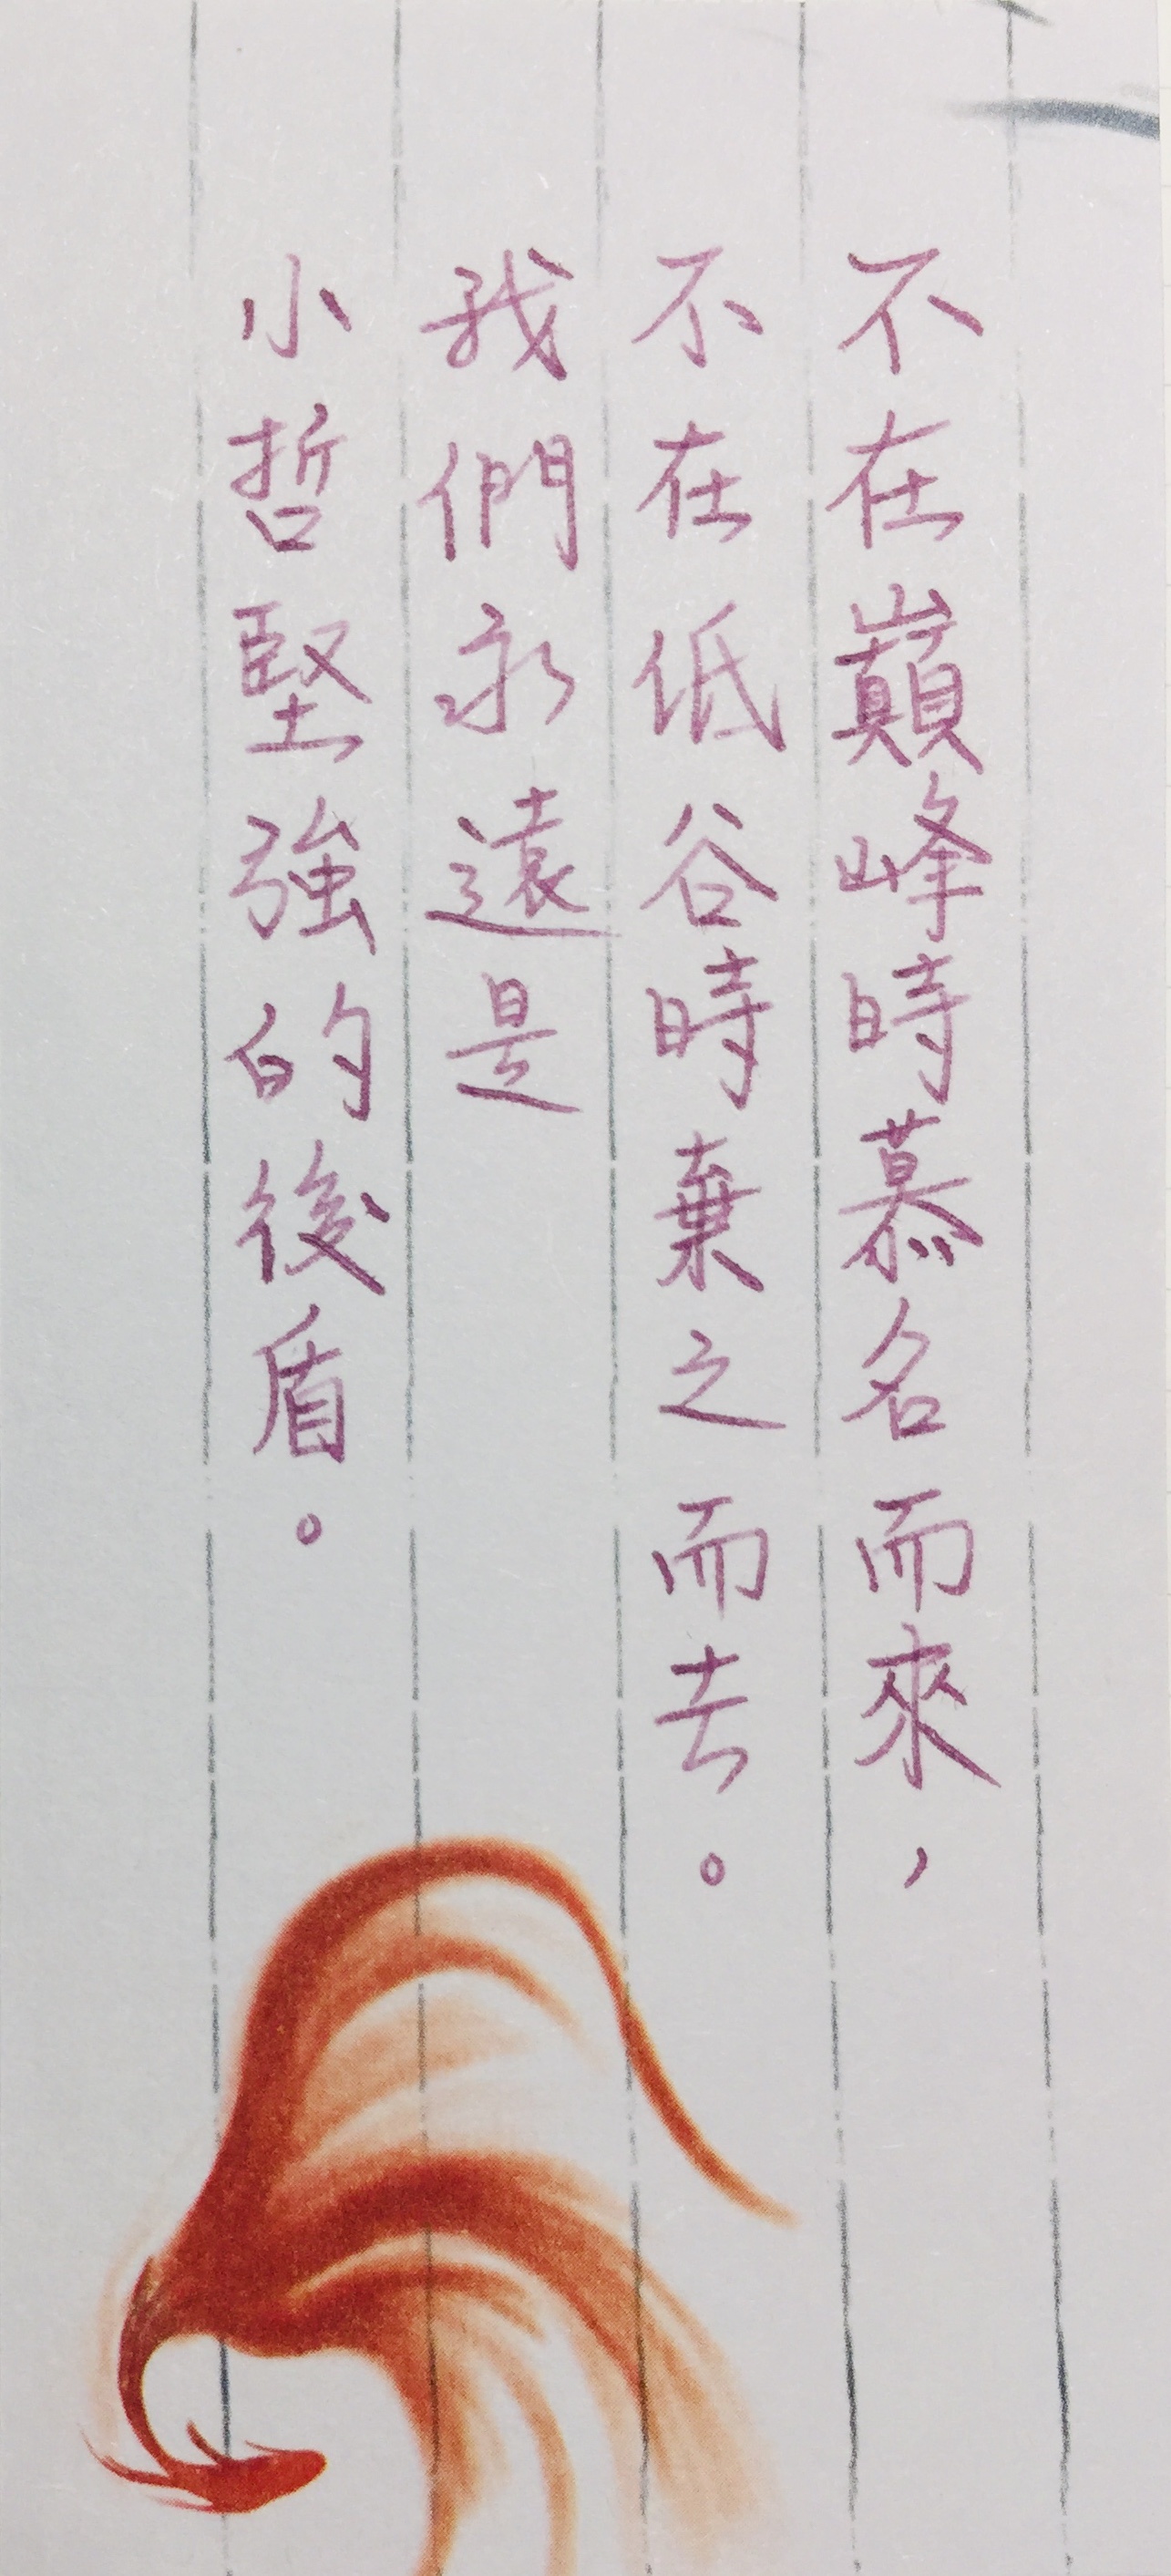 不在巔峰時慕名而來，
不在低谷時棄之而去。
我們永遠是
小哲堅強的後盾。